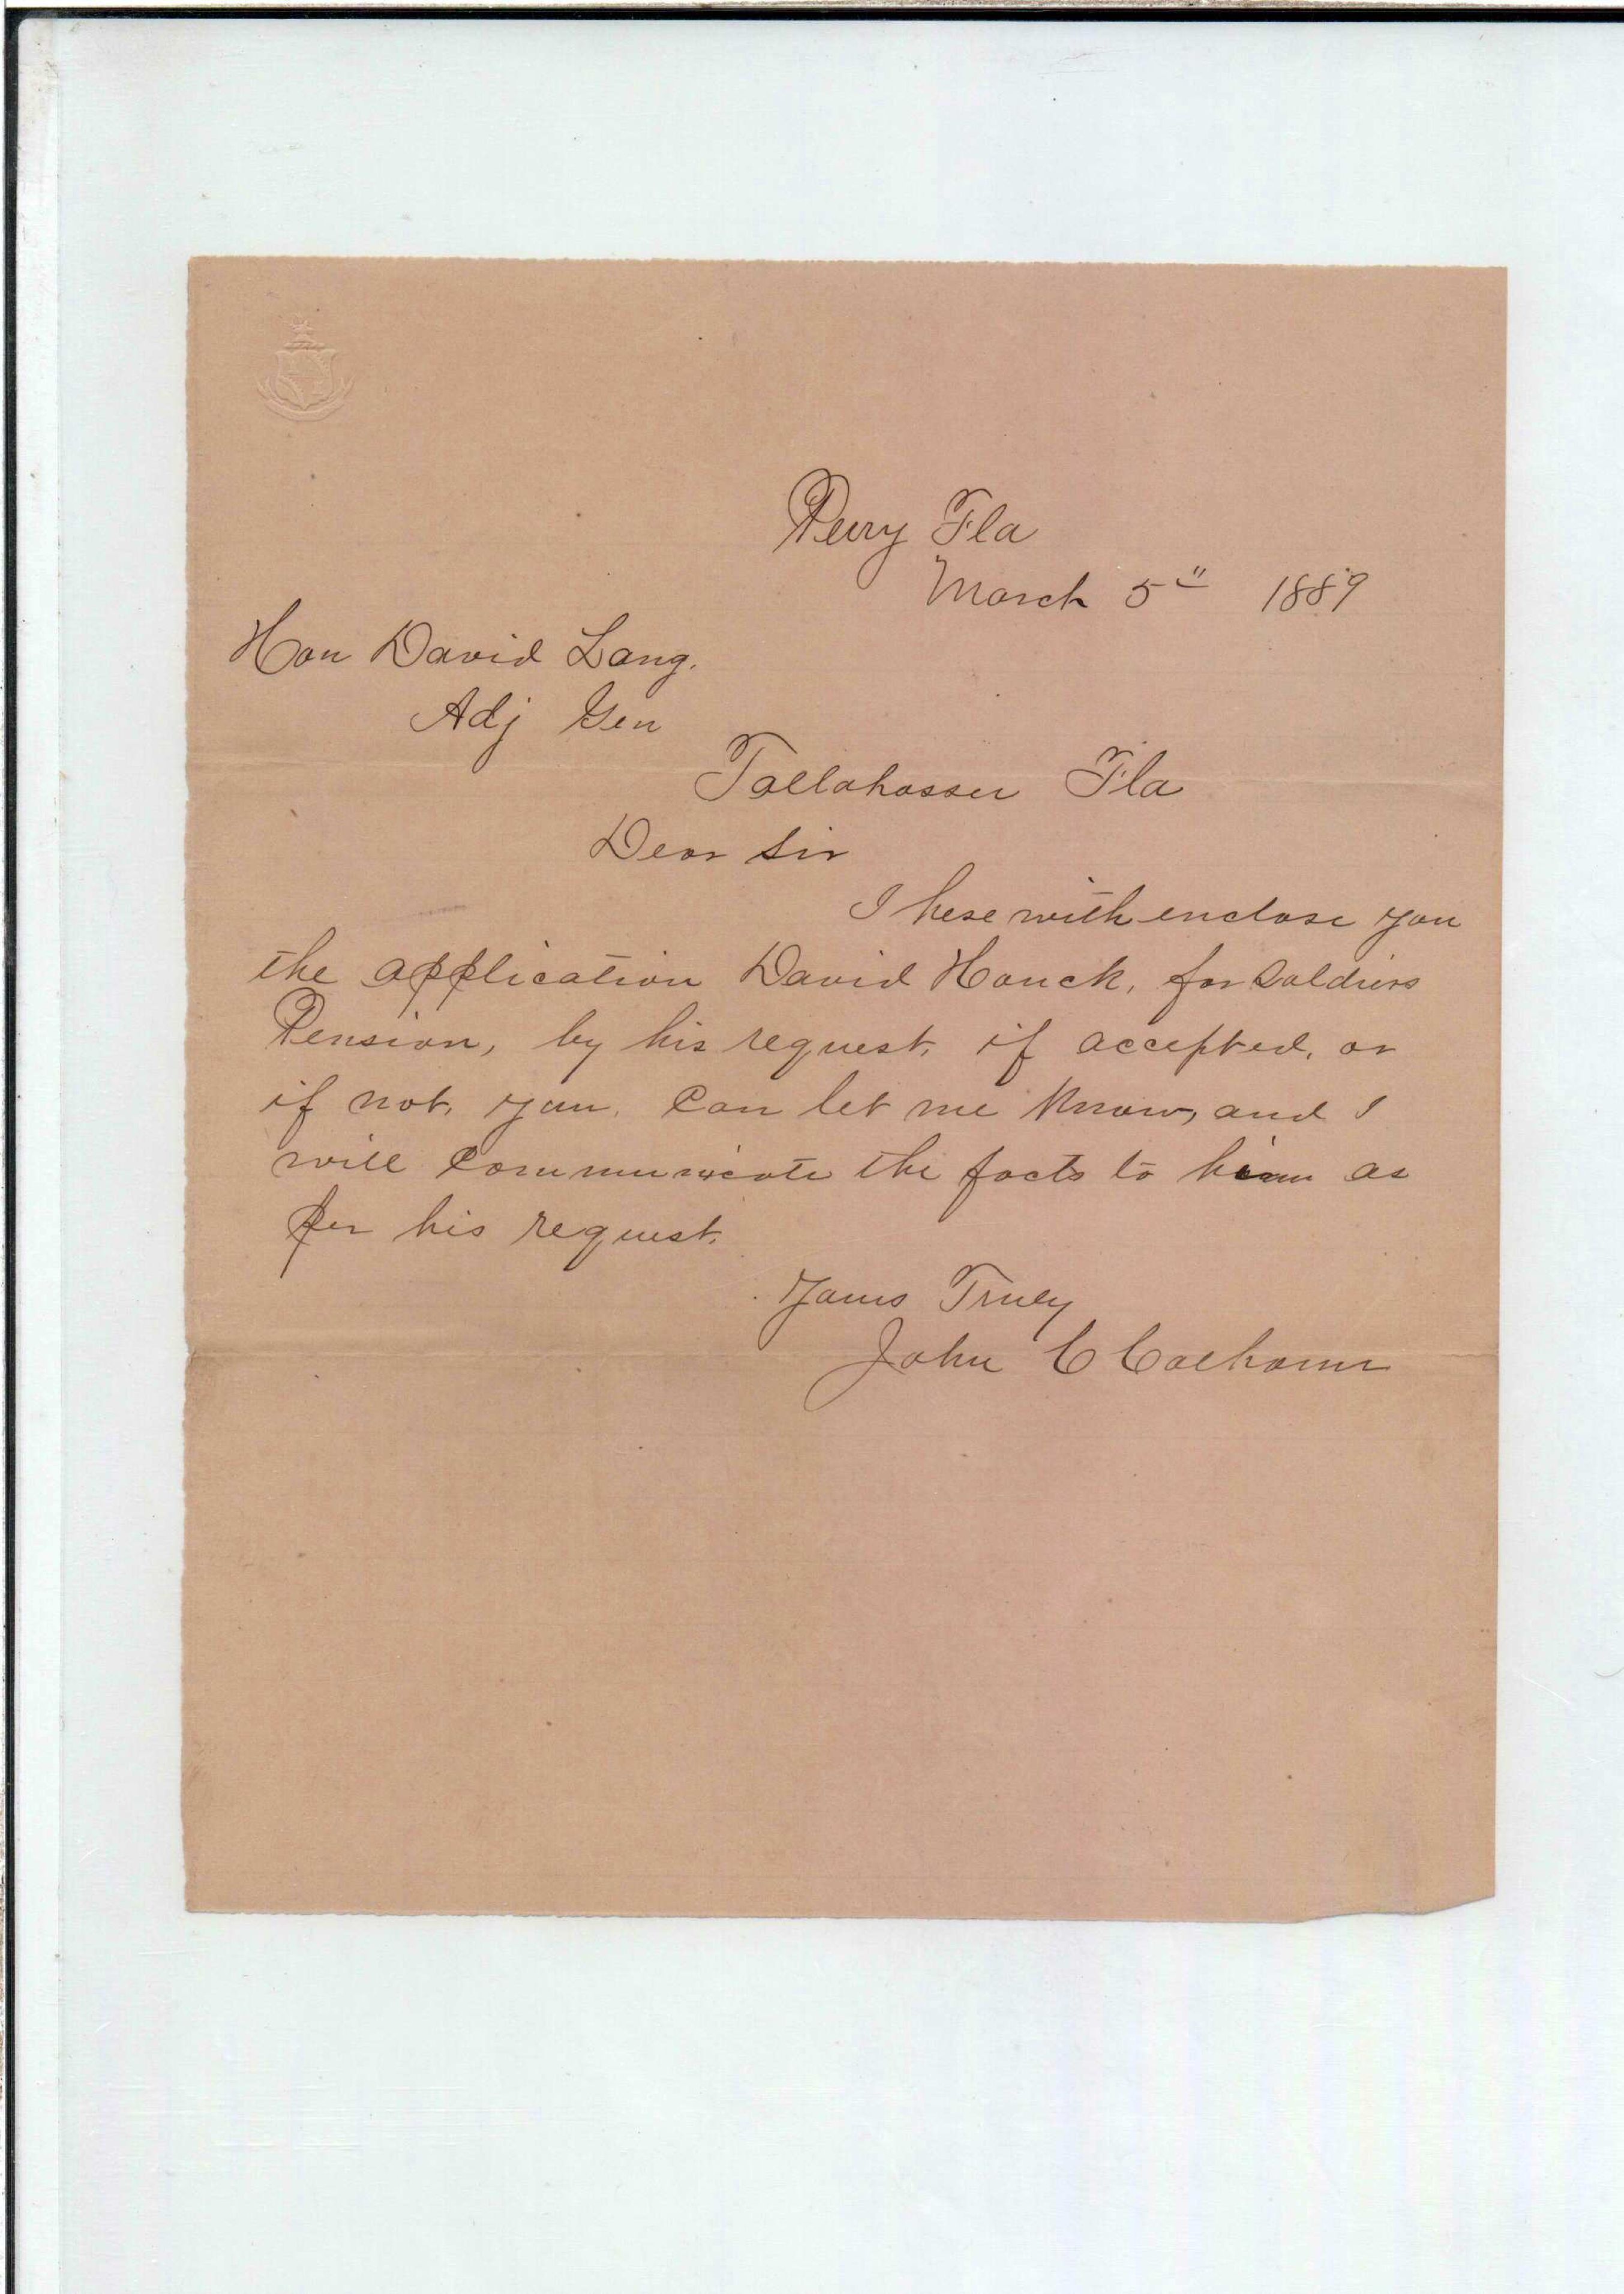 Perry Fla
March 5" 1889
Hon David Lang.
Adj Gen
Tallahassee Fla
Dear Sir
I herewith enclose you
the application David Houck, for Soldiers
Pension, by his request, if accepted, or
if not, you, Can let me Know, and I
will Communicate the facts to him as
per his request.
Yours Truly
John C Calhoun